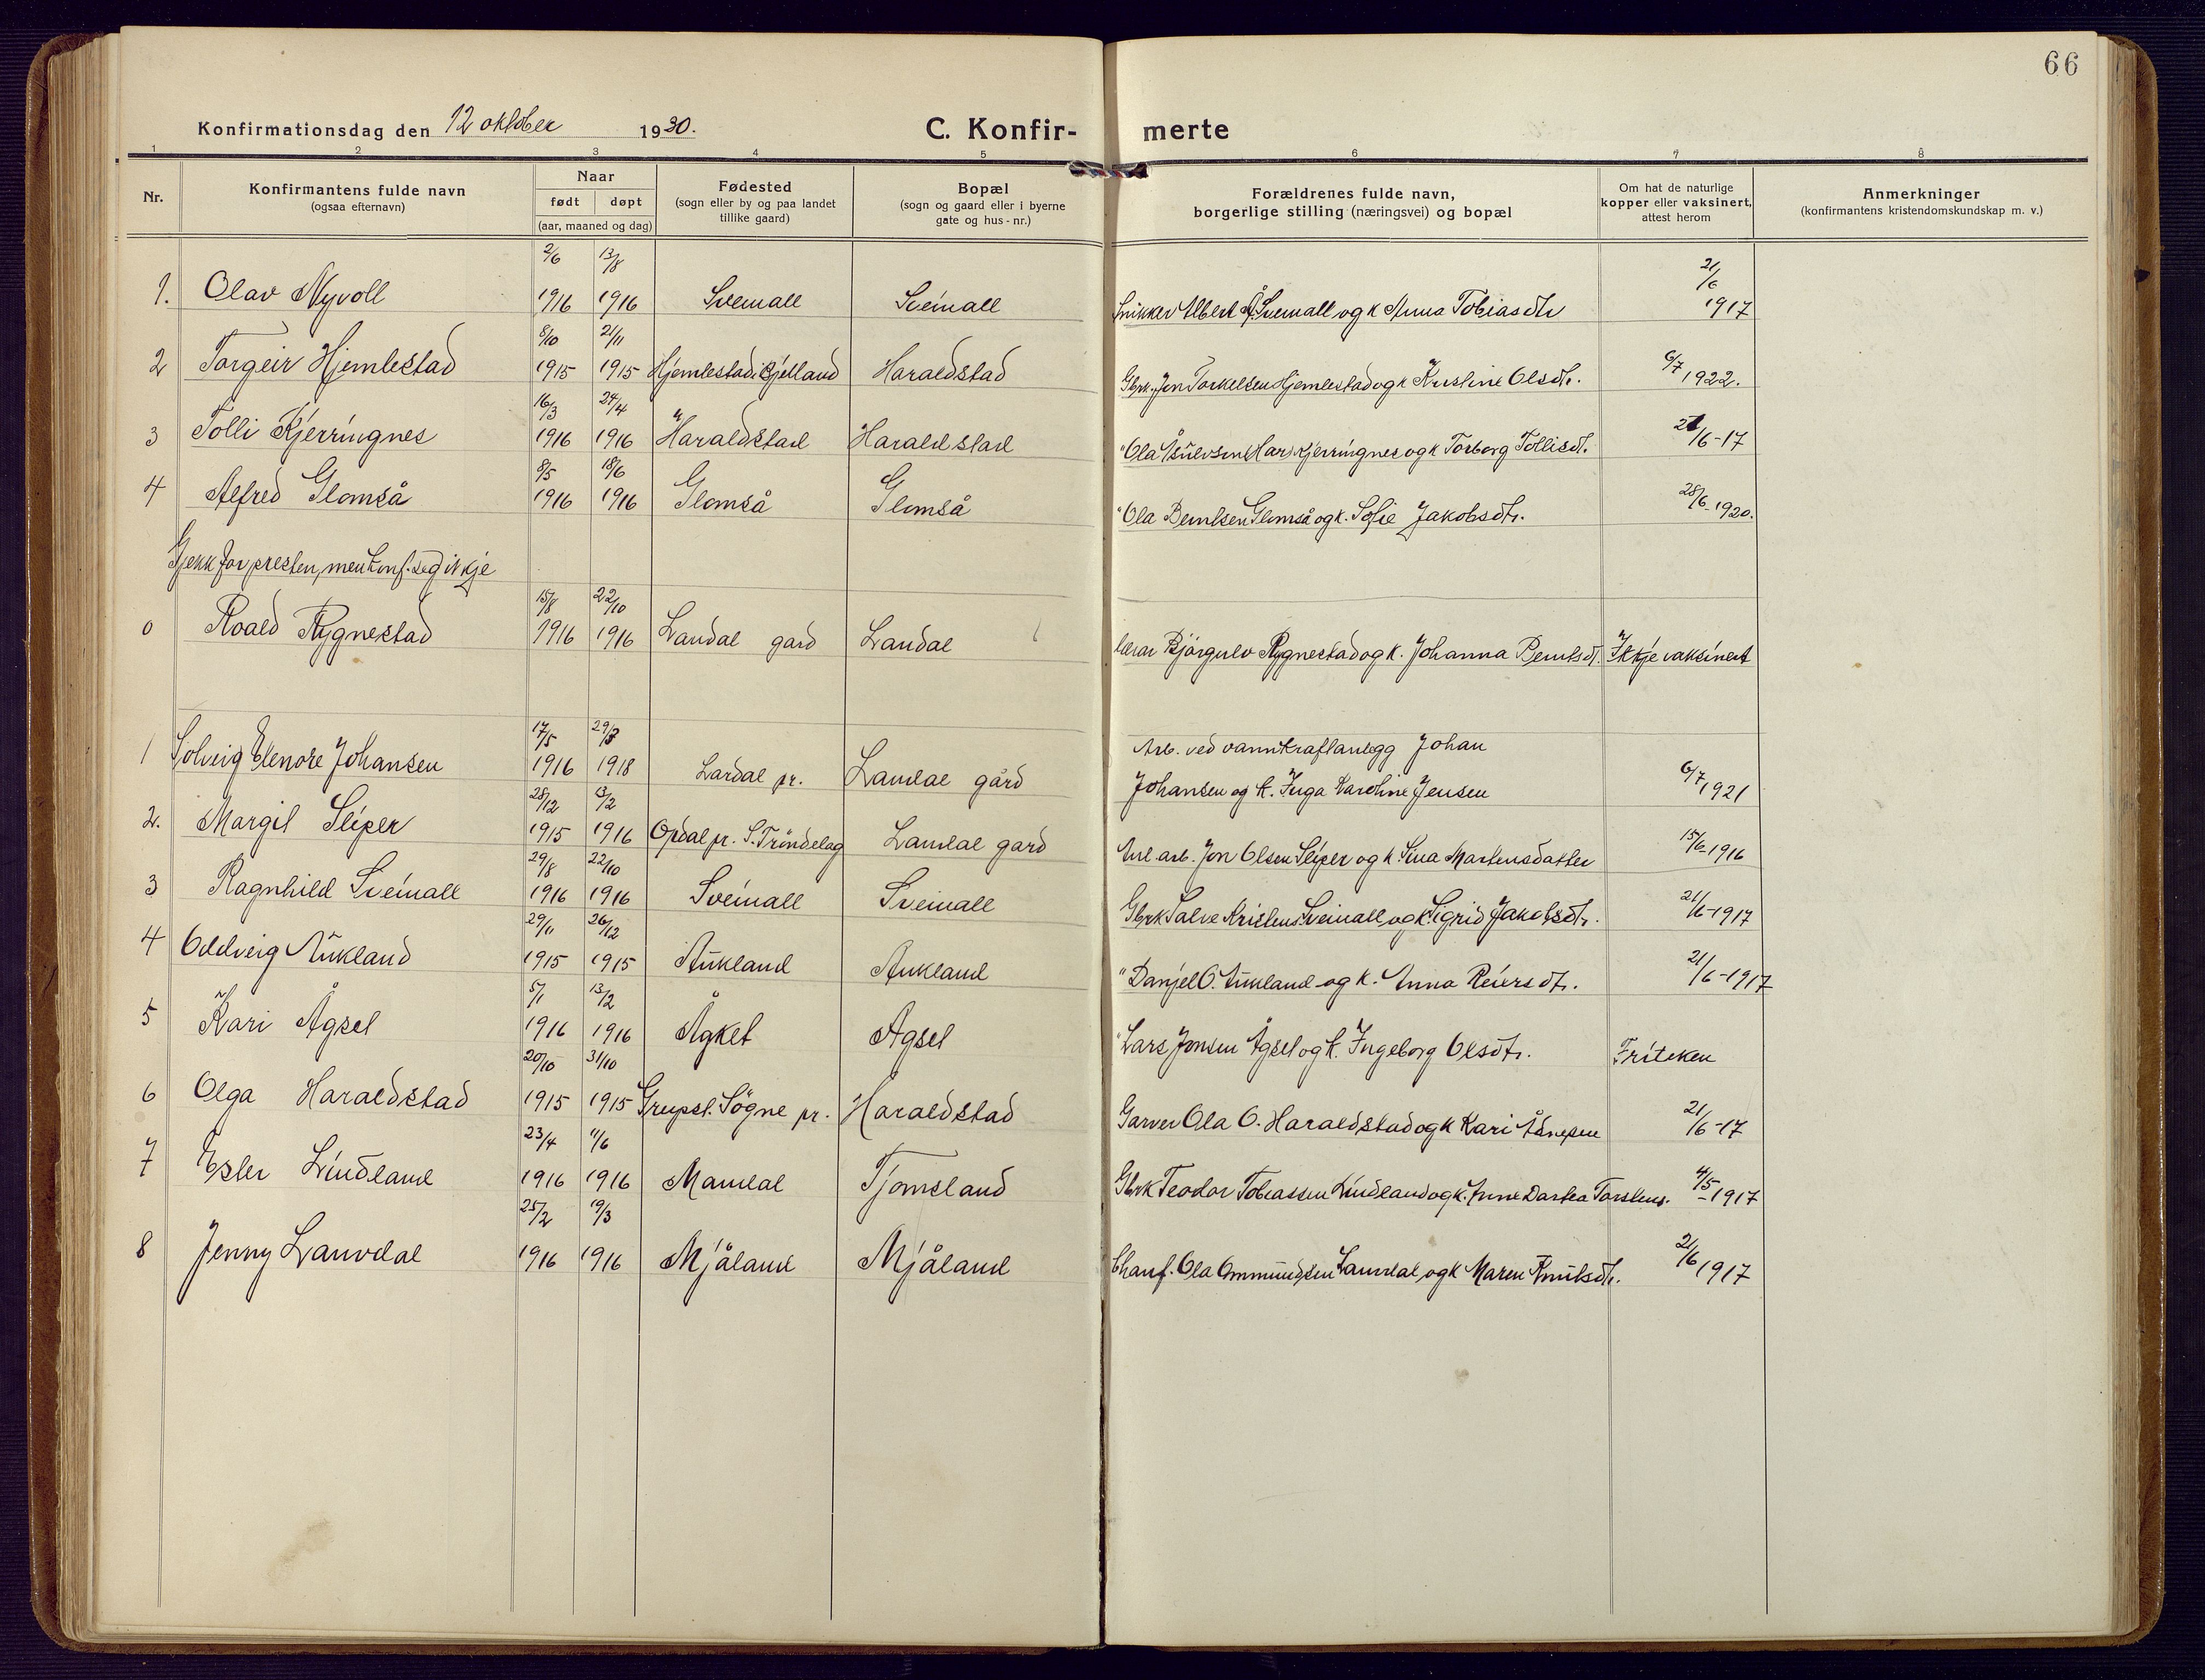 66
Konfirmationsdag den 12 oktober 1930. C. Konfir- merte
1 2 3 4 5 6 7 8
Nr. Konfirmantens fulde navn (ogsaa efternavn) Naar født døpt (aar, maaned og dag) Fødested (sogn eller by og paa landet tillike gaard) Bopæl (sogn og gaard eller i byerne gate og hus-nr.) Forældrenes fulde navn, borgerlige stilling (næringsvei) og bopæl Om hat de naturlige kopper eller vaksinert, attest herom Anmerkninger (konfirmantens kristendomskundskap m. v.)
2/6 13/8 21/6
1. Olav Nyvoll 1916 1916 Sveinall Sveinall Snikker Albert Å. Sveinall og k Anna Tobiasdtr 1917
8/10 21/11
2 Torgeir Hjemlestad 1915 1915 Hjemlestad i Bjelland Haraldstad Gbrk. Jon Torkelsen Hjemlestad og k Kristine Olsdtr. 6/7 1922.
16/3 24/4
3 Tolli Kjerringnes 1916 1916 Haraldstad Haraldstad " Ola (Har) Kjerringnes og k Torborg Tollisdt. 21/6-17
8/5 18/6
4 Alfred Glomså 1916 1916 Glomså Glomså " Ola Berntsen Glomså og k. Sofie Jakobsdtr. 28/6-1920.
Gjekk for presten, men konf. seg ikkje
15/8 22/10
0 Roald Rygnestad 1916 1916 Laudal gard Laudal lærar Bjørgulv Rygnestad og k. Johanna Berntsdt. Ikkje vaksinert
17/5 29/3 Arb. ved vannkraftanlegg Johan
1 Solveig Elenore Johansen 1916 1918 Lardal pr. Laudal gård Johansen og k. Inga Karoline Jensen 6/7 1921
28/12 13/2
2. Margit Sliper 1915 1916 Opdal pr. S. Trøndelag Laudal gard Anl. arb. Jon Olsen Sliper og k. Sina Martensdatter 15/6-1916
29/8 22/10
3 Ragnhild Sveinall 1916 1916 Sveinall Sveinall Gbrk Salve Kristens. Sveinall og k. Sigrid Jakobsdtr. 21/6-1917
29/11 26/12
4 Oddveig Aukland 1915 1915 Aukland Aukland " Danjel O. Aukland og k. Anna Reiersdtr. 21/6-1917
5/1 13/2
5 Kari Ågsel 1916 1916 Ågset Agsel " Lars Jonsen Ågsel og k. Ingeborg Olsdtr. Friteken
20/10 31/10
6 Olga Haraldstad 1915 1915 Greipst. Søgne pr. Haraldstad Garver Ola O. Haraldstad og k Kari Åsnesen 21/6-17
23/4 11/6
7 Ester Lindland 1916 1916 Mandal Tjomsland Gbrk Teodor Tobiassen Lindland og k. Anne Dartea Torstens. 4/5-1917
25/2 19/3
8 Jenny Lauvdal 1916 1916 Mjåland Mjåland Chauf. Ola Ommundsen Lauvdal og k Maren Knutsdtr. 21/6 1917